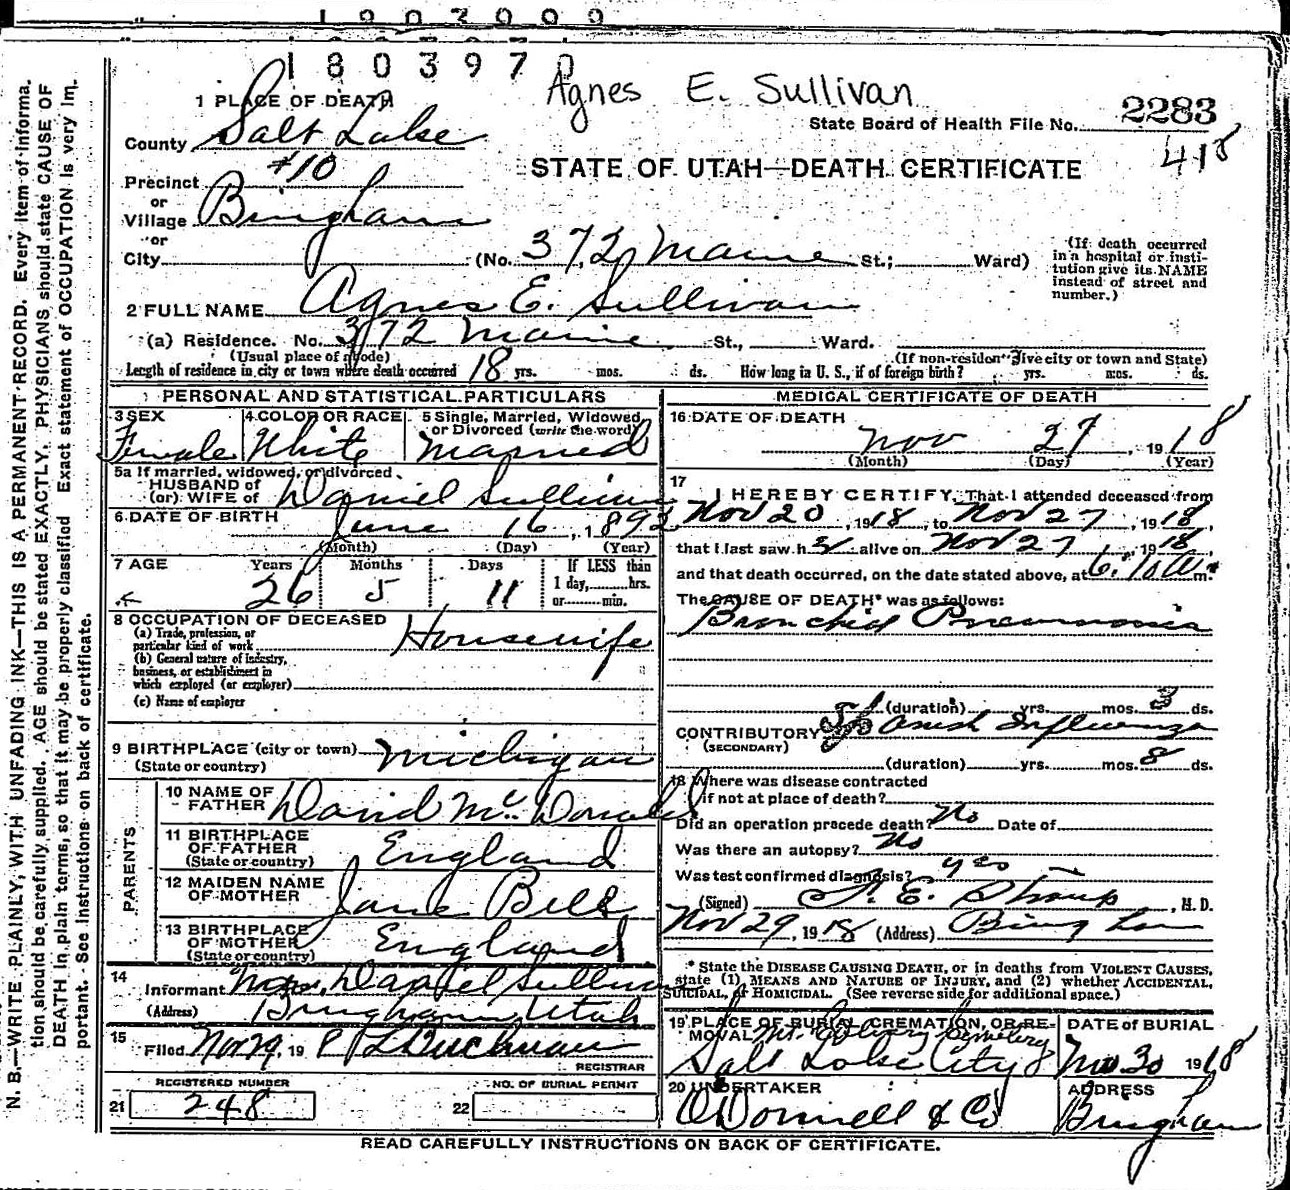 1803970
Agnes E. Sullivan
1 PLACE OF DEATH
State Board of Health File No. 2283
418
County Salt Lake
STATE OF UTAH—DEATH CERTIFICATE
Precinct #10
or
Village Bingham
or
City (No. 372 Maine St.; Ward)
(If death occurred in a hospital or institution give its NAME instead of street and number.)
2 FULL NAME Agnes E. Sullivan
(a) Residence. No. 372 Maine St., Ward.
(Usual place of abode) (If non-resident give city or town and State)
Length of residence in city or town where death occurred 18 yrs. mos. ds. How long in U. S., if of foreign birth? yrs. mos. ds.
PERSONAL AND STATISTICAL PARTICULARS
3 SEX Female
4 COLOR OR RACE White
5 Single, Married, Widowed, or Divorced (write the word) Married
5a If married, widowed, or divorced
HUSBAND of
(or) WIFE of Daniel Sullivan
6 DATE OF BIRTH June 16, 1892
(Month) (Day) (Year)
7 AGE Years Months Days If LESS than
1 day, hrs.
or min.
26 5 11
8 OCCUPATION OF DECEASED
(a) Trade, profession, or particular kind of work Housewife
(b) General nature of industry, business, or establishment in which employed (or employer)
(c) Name of employer
9 BIRTHPLACE (city or town) Michigan
(State or country)
PARENTS
10 NAME OF FATHER David McDonald
11 BIRTHPLACE OF FATHER England
(State or country)
12 MAIDEN NAME OF MOTHER Jane Bell
13 BIRTHPLACE OF MOTHER England
(State or country)
14 Informant Daniel Sullivan
(Address) Bingham, Utah
15 Filed Nov 29, 19
REGISTRAR
REGISTERED NUMBER
21 248
NO. OF BURIAL PERMIT
22
MEDICAL CERTIFICATE OF DEATH
16 DATE OF DEATH
Nov 27, 1918
(Month) (Day) (Year)
17 I HEREBY CERTIFY, That I attended deceased from
Nov 20, 1918, to Nov 27, 1918,
that I last saw h alive on Nov 27, 1918,
and that death occurred, on the date stated above, at 6:10 a m.
The CAUSE OF DEATH* was as follows:
Bronchial Pneumonia
(duration) yrs. mos. 3 ds.
CONTRIBUTORY Spanish Influenza
(SECONDARY)
(duration) yrs. mos. 8 ds.
18 Where was disease contracted
if not at place of death?
Did an operation precede death? No Date of
Was there an autopsy? No
Was test confirmed diagnosis? yes
(Signed) , M. D.
Nov 29, 1918 (Address) Bingham
* State the DISEASE CAUSING DEATH, or in deaths from VIOLENT CAUSES,
state (1) MEANS AND NATURE OF INJURY, and (2) whether ACCIDENTAL,
SUICIDAL, or HOMICIDAL. (See reverse side for additional space.)
19 PLACE OF BURIAL, CREMATION, OR REMOVAL Mt. Calvary Cemetery
Salt Lake City
DATE of BURIAL
Nov 30 1918
20 UNDERTAKER
O'Donnell & Co
ADDRESS
Bingham
READ CAREFULLY INSTRUCTIONS ON BACK OF CERTIFICATE.
N. B.—WRITE PLAINLY, WITH UNFADING INK—THIS IS A PERMANENT RECORD. Every item of information should be carefully supplied. AGE should be stated EXACTLY. PHYSICIANS should state CAUSE OF DEATH in plain terms, so that it may be properly classified. Exact statement of OCCUPATION is very important. See instructions on back of certificate.